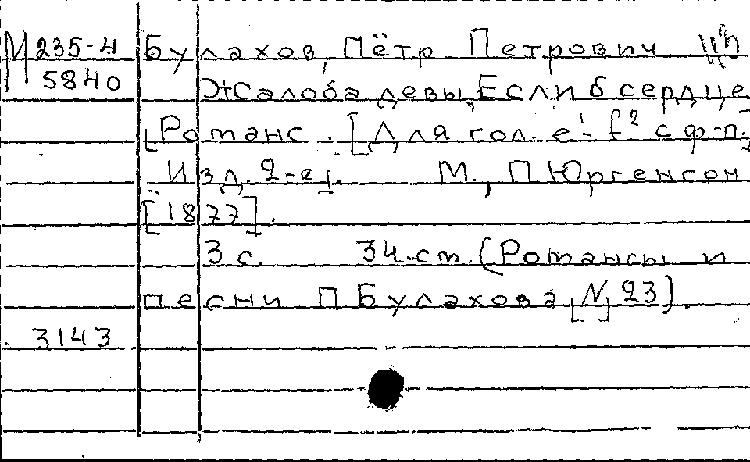 М 235-4 Булахов, Пётр Петрович
5840 Жалоба девы. Если б сердце
[Романс. [Для гол. e¹-f² с ф-п.]
Изд. 2-е]. М., П Юргенсон
[1877].
3 с. 34 см. (Романсы и
песни П Булахова [N] 23).
3143